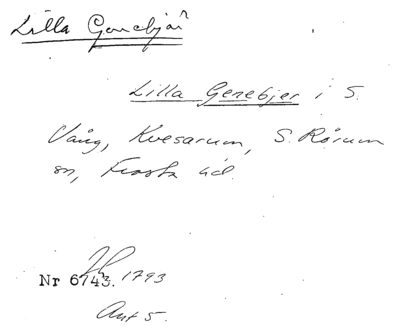 Lilla Genebjär
Lilla Genebjer i S.
Vång, Kvesarum, S. Rörum
sn, Frosta hd.
Nr 6743. 1793
Akt 5.